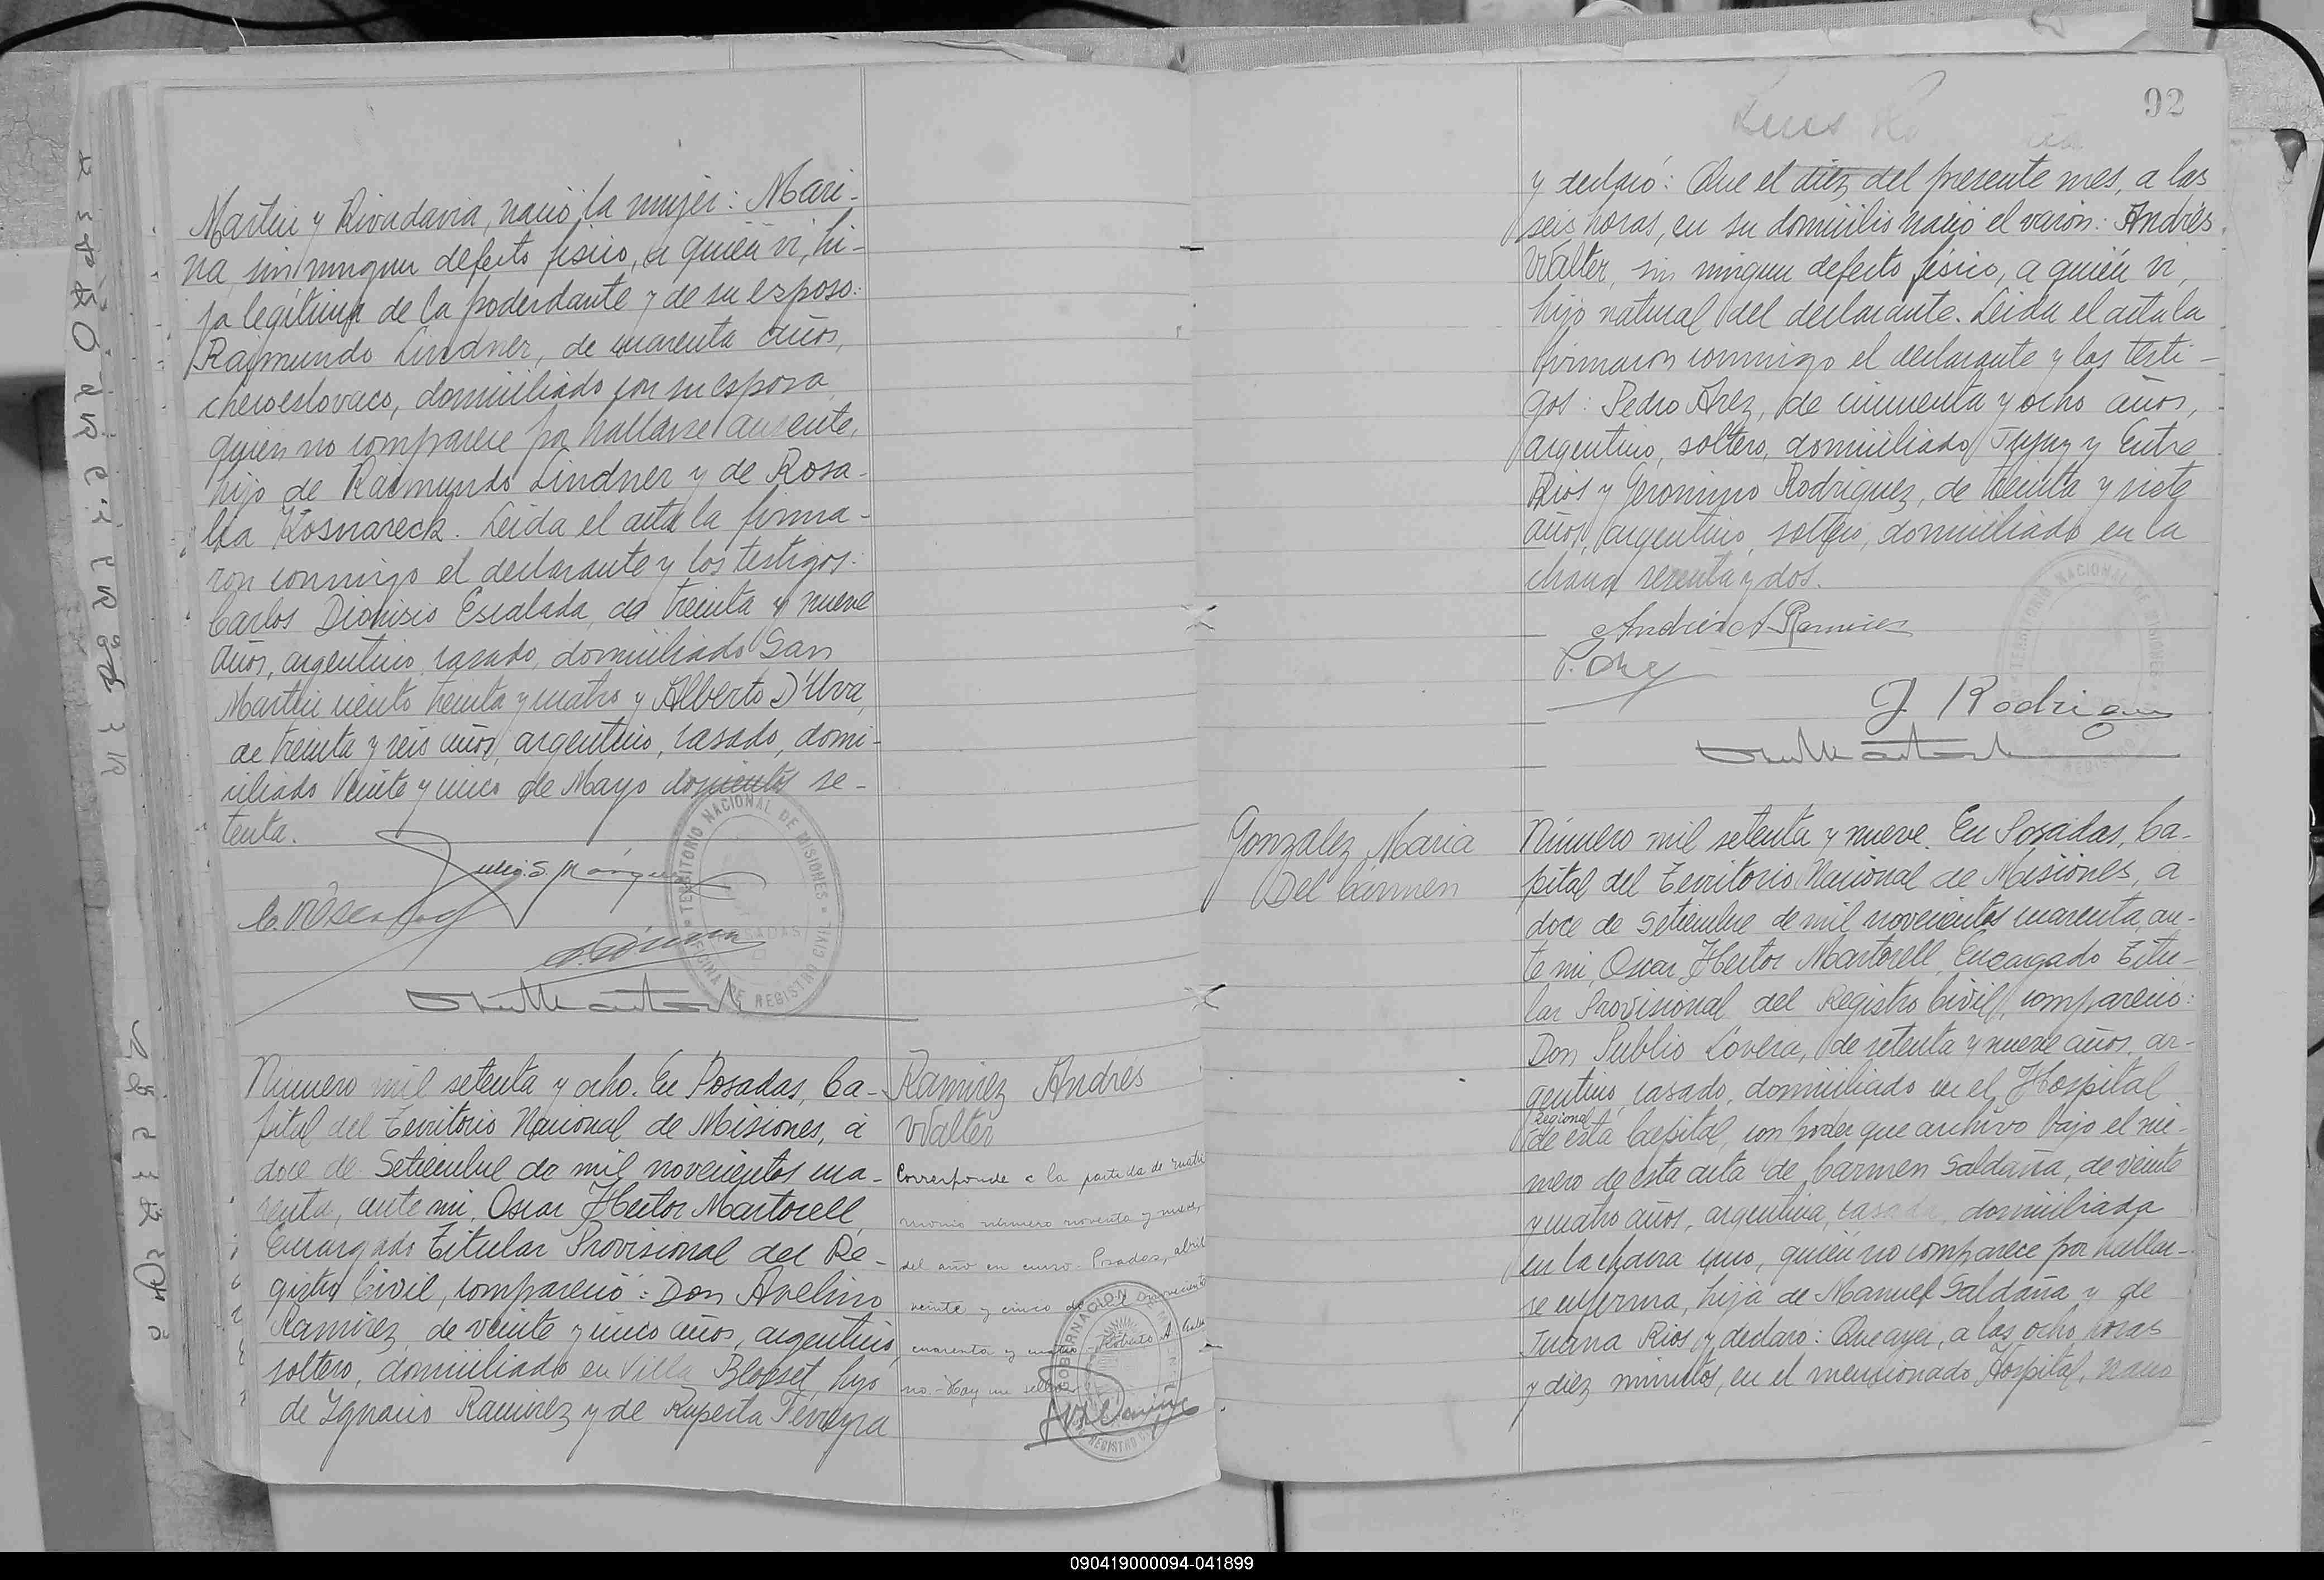 Martin y Rivadavia, nació la mujer: Mari-
na, sin ningun defecto físico, a quién vi, hi-
ja legítima de la poderdante y de su esposo:
Raimundo Lindner, de cuarenta años,
checoeslovaco, domiciliado con su esposa,
quién no comparece por hallarse ausente,
hijo de Raimundo Lindner y de Rosa-
lia Kosnareck. Leida el acta la firma-
ron conmigo el declarante y los testigos:
Carlos Dionisio Escalada, de treinta y nueve
años, argentino, casado, domiciliado San
Martin ciento treinta y cuatro y Alberto D'Uva,
de treinta y seis años, argentino, casado, domi-
ciliado Veinte y cinco de Mayo doscientos se-
tenta.
TERRITORIO NACIONAL DE MISIONES
OFICINA DE REGISTRO CIVIL
POSADAS
Número mil setenta y ocho. En Posadas, Ca-
pital del Territorio Nacional de Misiones, a
doce de Setiembre de mil novecientos cua-
renta, ante mi, Oscar Hector Martorell,
Encargado Titular Provisional del Re-
gistro Civil, compareció: Don Avelino
Ramirez, de veinte y cinco años, argentino,
soltero, domiciliado en Villa Blosset, hijo
de Ignacio Ramirez y de Ruperta Ferreyra
Ramirez Andrés
Walter
Corresponde a la partida de matri
monio número noventa y nueve,
del año en curso. Posadas, abril
veinte y cinco de mil novecientos
cuarenta y cuatro - Roberto A.
no. - Hay un sello
GOBERNACION
REGISTRO
92
Luis
y declaró: Que el diez del presente mes, a las
seis horas, en su domicilio nació el varón: Andrés
Walter, sin ningun defecto físico, a quién vi,
hijo natural del declarante. Leida el acta la
firmaron conmigo el declarante y los testi-
gos: Pedro Arez, de cincuenta y ocho años,
argentino, soltero, domiciliado Jujuy y Entre
Rios y Geronimo Rodriguez, de treinta y siete
años, argentino, soltero, domiciliado en la
chacra sesenta y dos.
Andrés A Ramirez
J. Rodrigue
TERRITORIO NACIONAL DE MISIONES
REGISTRO
Gonzalez Maria
Del Cármen
Número mil setenta y nueve. En Posadas, Ca-
pital del Territorio Nacional de Misiones, a
doce de Setiembre de mil novecientos cuarenta, an-
te mi, Oscar Hector Martorell, Encargado Titu-
lar Provisional del Registro Civil, compareció:
Don Publio Lovera, de setenta y nueve años, ar-
gentino, casado, domiciliado en el Hospital
Regional
de esta Capital, con poder que archivo bajo el nú-
mero de esta acta de Carmen Saldaña, de veinte
y cuatro años, argentina, casada, domiciliada
en la chacra uno, quién no comparece por hallar-
se enferma, hija de Manuel Saldaña y de
Juana Rios, y declaró: Que ayer, a las ocho horas
y diez minutos, en el mencionado Hospital, nació
090419000094-041899